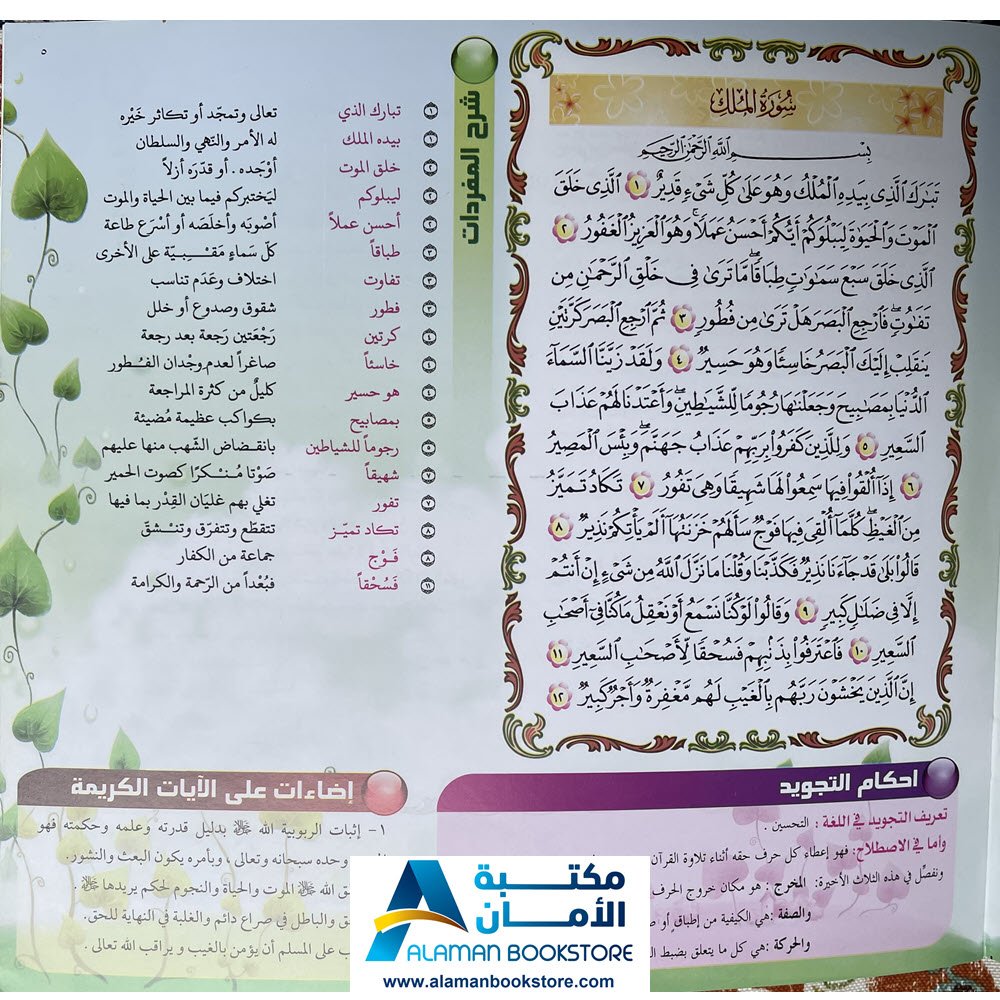 ٥
سُورَةُ المُلْكِ
بِسْمِ اللَّهِ الرَّحْمَٰنِ الرَّحِيمِ
تَبَٰرَكَ ٱلَّذِى بِيَدِهِ ٱلْمُلْكُ وَهُوَ عَلَىٰ كُلِّ شَىْءٍ قَدِيرٌ ١ ٱلَّذِى خَلَقَ
ٱلْمَوْتَ وَٱلْحَيَوٰةَ لِيَبْلُوَكُمْ أَيُّكُمْ أَحْسَنُ عَمَلًا ۚ وَهُوَ ٱلْعَزِيزُ ٱلْغَفُورُ ٢
ٱلَّذِى خَلَقَ سَبْعَ سَمَٰوَٰتٍ طِبَاقًا ۖ مَّا تَرَىٰ فِى خَلْقِ ٱلرَّحْمَٰنِ مِن
تَفَٰوُتٍ ۖ فَٱرْجِعِ ٱلْبَصَرَ هَلْ تَرَىٰ مِن فُطُورٍ ٣ ثُمَّ ٱرْجِعِ ٱلْبَصَرَ كَرَّتَيْنِ
يَنقَلِبْ إِلَيْكَ ٱلْبَصَرُ خَاسِئًا وَهُوَ حَسِيرٌ ٤ وَلَقَدْ زَيَّنَّا ٱلسَّمَآءَ
ٱلدُّنْيَا بِمَصَٰبِيحَ وَجَعَلْنَٰهَا رُجُومًا لِّلشَّيَٰطِينِ ۖ وَأَعْتَدْنَا لَهُمْ عَذَابَ
ٱلسَّعِيرِ ٥ وَلِلَّذِينَ كَفَرُوا۟ بِرَبِّهِمْ عَذَابُ جَهَنَّمَ ۖ وَبِئْسَ ٱلْمَصِيرُ
٦ إِذَآ أُلْقُوا۟ فِيهَا سَمِعُوا۟ لَهَا شَهِيقًا وَهِىَ تَفُورُ ٧ تَكَادُ تَمَيَّزُ
مِنَ ٱلْغَيْظِ ۖ كُلَّمَآ أُلْقِىَ فِيهَا فَوْجٌ سَأَلَهُمْ خَزَنَتُهَآ أَلَمْ يَأْتِكُمْ نَذِيرٌ ٨
قَالُوا۟ بَلَىٰ قَدْ جَآءَنَا نَذِيرٌ فَكَذَّبْنَا وَقُلْنَا مَا نَزَّلَ ٱللَّهُ مِن شَىْءٍ إِنْ أَنتُمْ
إِلَّا فِى ضَلَٰلٍ كَبِيرٍ ٩ وَقَالُوا۟ لَوْ كُنَّا نَسْمَعُ أَوْ نَعْقِلُ مَا كُنَّا فِىٓ أَصْحَٰبِ
ٱلسَّعِيرِ ١٠ فَٱعْتَرَفُوا۟ بِذَنۢبِهِمْ فَسُحْقًا لِّأَصْحَٰبِ ٱلسَّعِيرِ ١١
إِنَّ ٱلَّذِينَ يَخْشَوْنَ رَبَّهُم بِٱلْغَيْبِ لَهُم مَّغْفِرَةٌ وَأَجْرٌ كَبِيرٌ ١٢
شرح المفردات
١ تبارك الذي تعالى وتمجّد أو تكاثر خَيْره
١ بيده الملك له الأمر والنّهي والسلطان
٢ خلق الموت أوْجَده . أو قدّرَه أزلاً
٢ ليبلوكم ليَختبركم فيما بين الحياة والموت
٢ أحسن عملاً أصْوَبه وأخلَصَه أو أسْرَع طاعة
٣ طباقاً كلّ سَماءٍ مَقْبيّة على الأخرى
٣ تفاوت اختلاف وعَدَم تناسب
٣ فطور شقوق وصدوع أو خلل
٤ كرتين رَجْعَتين رَجعة بعد رجعة
٤ خاسئاً صاغراً لعدم وجْدان الفُطور
٤ هو حسير كليلٌ من كثرة المراجعة
٥ بمصابيح بكواكب عظيمة مُضيئة
٥ رجوماً للشياطين بانقضاض الشّهب منها عليهم
٧ شهيقاً صَوْتا مُنْكرًا كصوت الحمير
٧ تفور تغلي بهم غلَيَان القِدْر بما فيها
٨ تكاد تميّز تتقطّع وتتفرّق وتنْشقّ
٨ فَوْج جماعة من الكفار
١١ فَسُحْقاً فبُعْداً من الرّحمة والكرامة
احكام التجويد
تعريف التجويد في اللغة : التحسين .
وأما في الاصطلاح: فهو إعطاء كل حرف حقه أثناء تلاوة القرآن
ونفصِّل في هذه الثلاث الأخيرة: المخرج : هو مكان خروج الحرف
والصفة :هي الكيفية من إطباق أو
والحركة :هي كل ما يتعلق بضبط
إضاءات على الآيات الكريمة
١- إثبات الربوبية الله ﷻ بدليل قدرته وعلمه وحكمته فهو
وحده سبحانه وتعالى ، وبأمره يكون البعث والنشور.
الله ﷻ الموت والحياة والنجوم لحكم يريدها ﷻ.
والباطل في صراع دائم والغلبة في النهاية للحق.
على المسلم أن يؤمن بالغيب و يراقب الله تعالى .
مكتبة
الأمان
ALAMAN BOOKSTORE
www.alamanbookstore.com